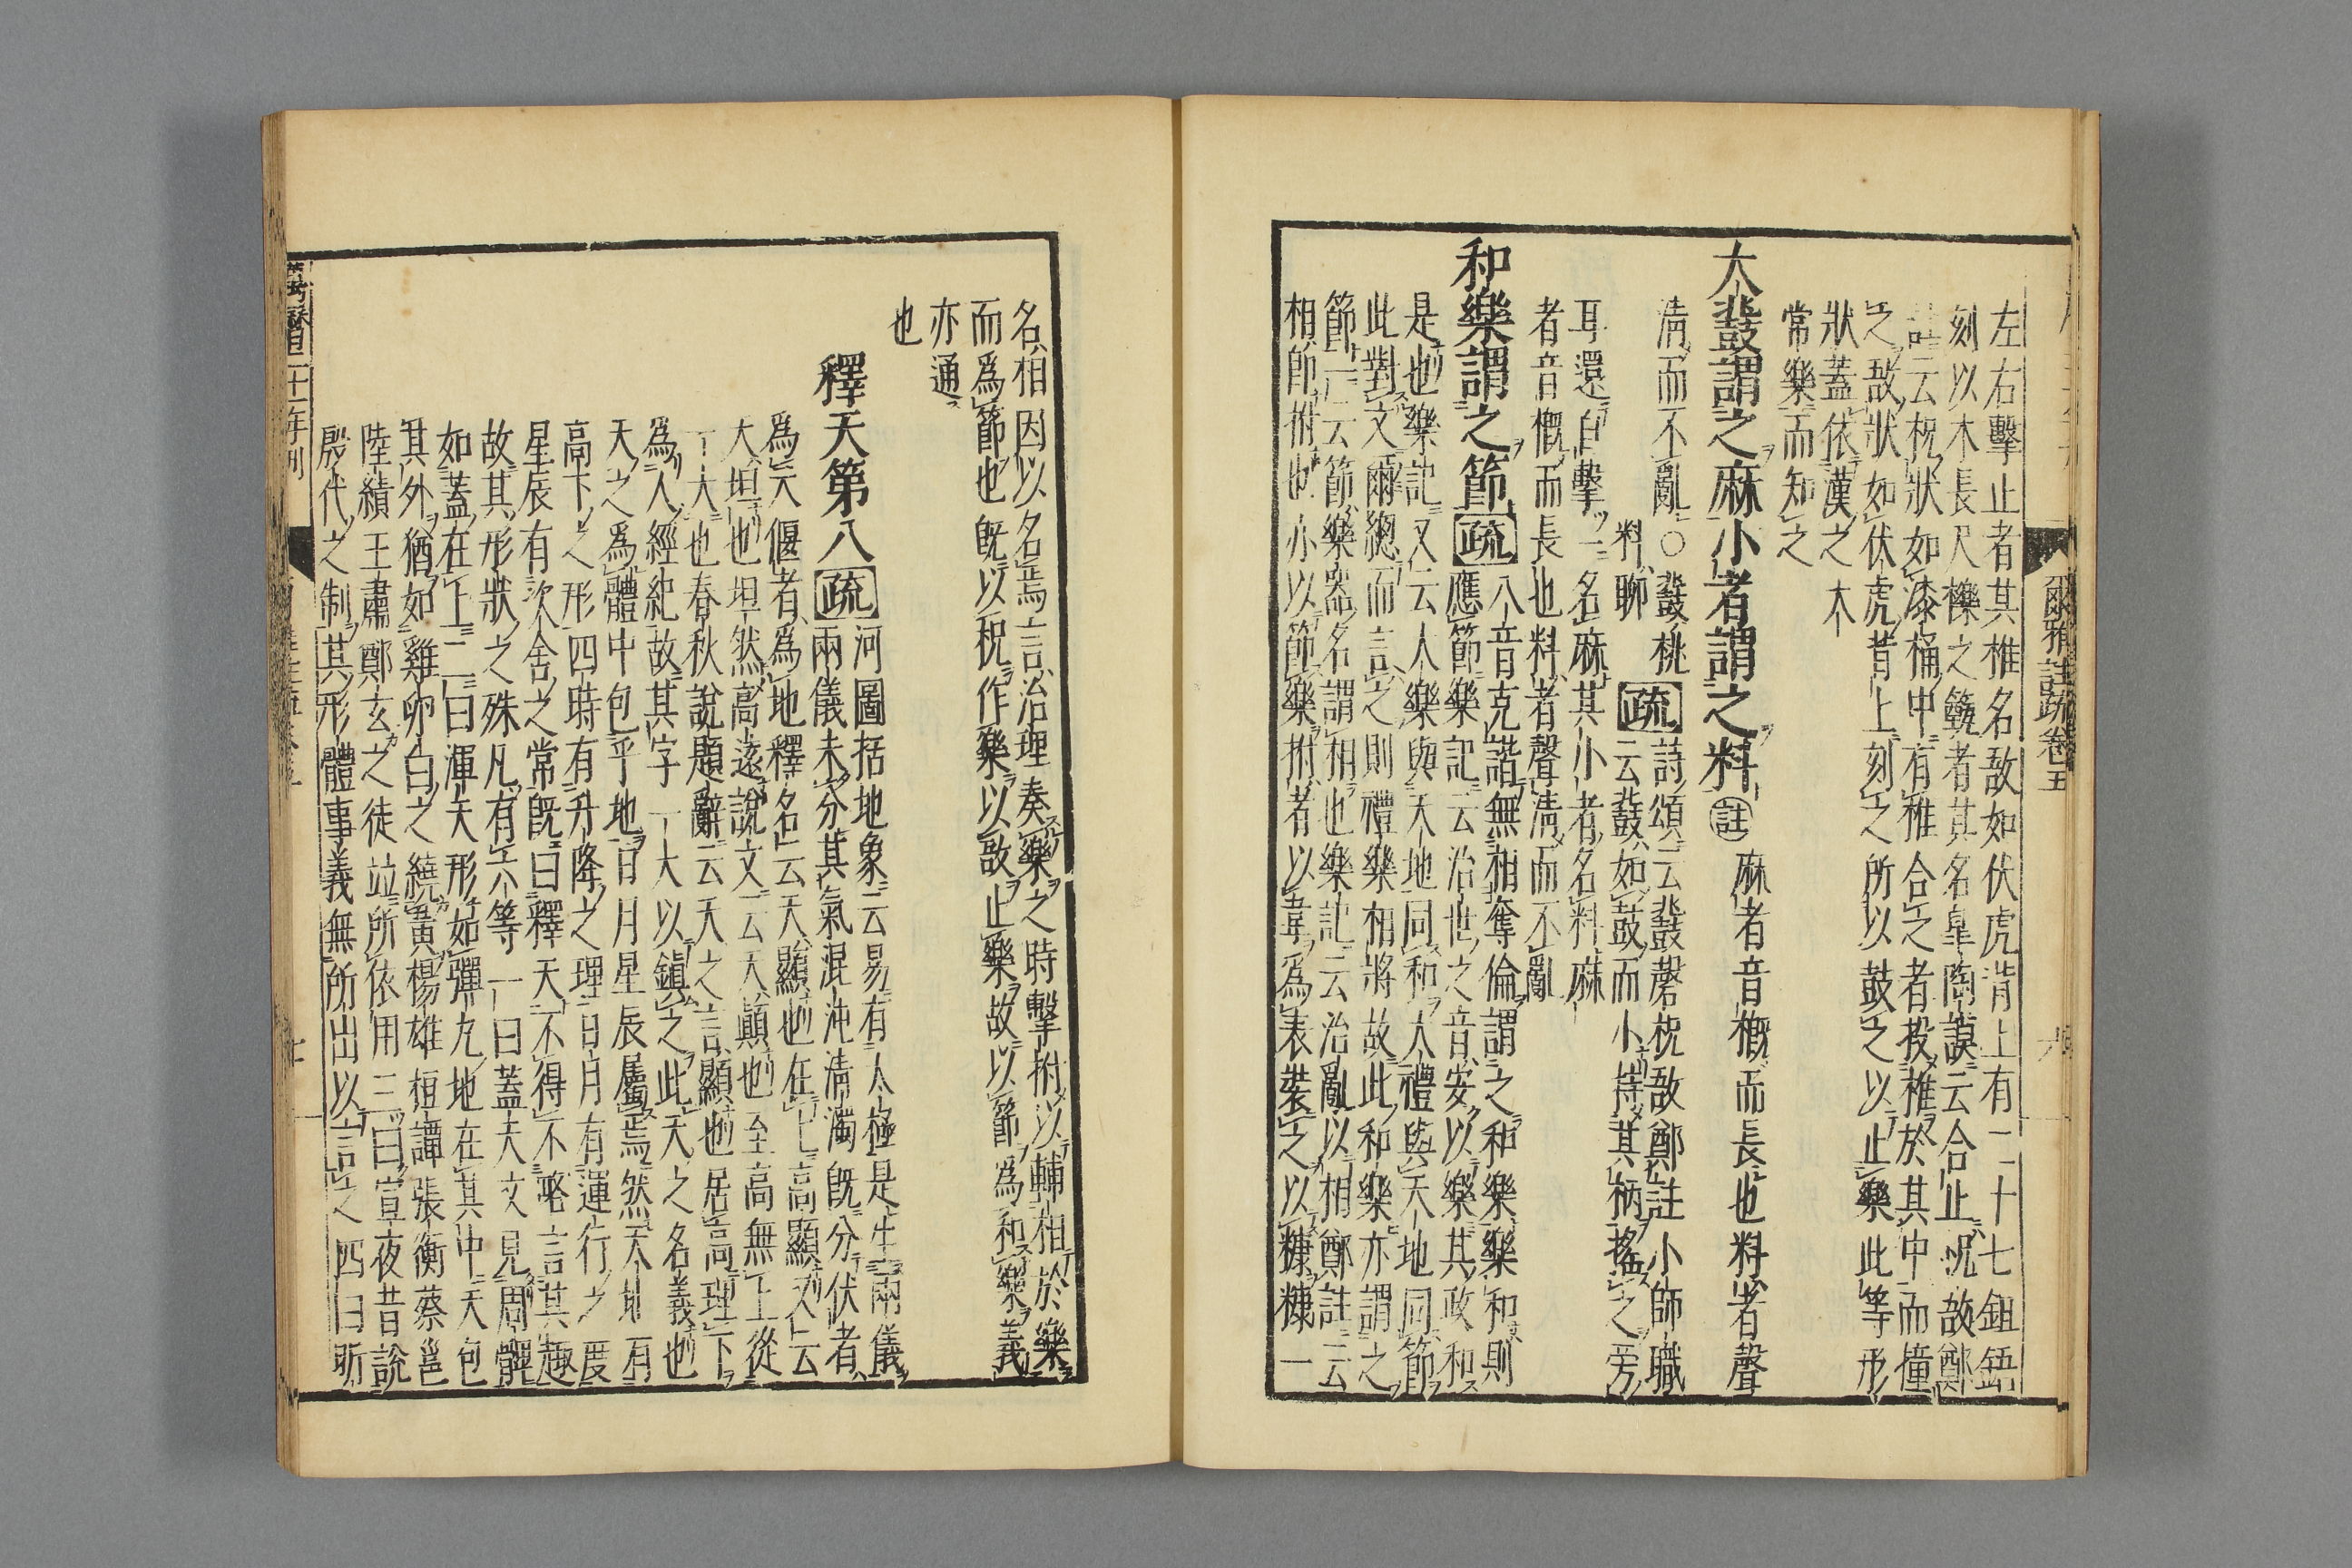 爾雅註疏卷五
左右擊止者其椎名敔如伏虎背上有二十七鉏鋙
刻以木長尺櫟之籈者其名皐陶謨云合止柷敔鄭
註云柷狀如漆桶中有椎合之者投椎於其中而撞
之敔狀如伏虎背上刻之所以鼓之以止樂此等形
狀蓋依漢之大
常樂而知之
大鼗謂之麻小者謂之料註麻者音概而長也料者聲
清而不亂○鼗桃
料聊
疏詩頌云鼗磬柷敔鄭註小師職
云鼗如鼓而小持其柄搖之旁
耳還自擊一名麻其小者名料麻
者音概而長也料者聲清而不亂
和樂謂之節疏八音克諧無相奪倫謂之和樂樂和則
應節樂記云治世之音安以樂其政和
是也樂記又云大樂與天地同和大禮與天地同節
此對文爾總而言之則禮樂相將故此和樂亦謂之
節一云節樂器名謂相也樂記云治亂以相鄭註云
相即拊也亦以節樂拊者以韋爲表裝之以糠糠一
名相因以名焉言治理奏樂之時擊拊以輔相於樂
而爲節也既以柷作樂以敔止樂故以節爲和樂義
亦通
也
釋天第八疏河圖括地象云易有太極是生兩儀
兩儀未分其氣混沌清濁既分伏者
爲天偃者爲地釋名云天顯也在上高顯又云
天坦也坦然高遠說文云天顚也至高無上從
一大也春秋說題辭云天之言顯也居高理下
爲人經紀故其字一大以鎭之此天之名義也
天之爲體中包乎地日月星辰屬焉然天地有
高下之形四時有升降之理日月有運行之度
星辰有次舍之常既曰釋天不得不略言其趣
故其形狀之殊凡有六等一曰蓋天文見周髀
如蓋在上二曰渾天形如彈丸地在其中天包
其外猶如雞卵白之繞黃楊雄桓譚張衡蔡邕
陸績王肅鄭玄之徒竝所依用三曰宣夜昔說
殷代之制其形體事義無所出以言之四曰昕